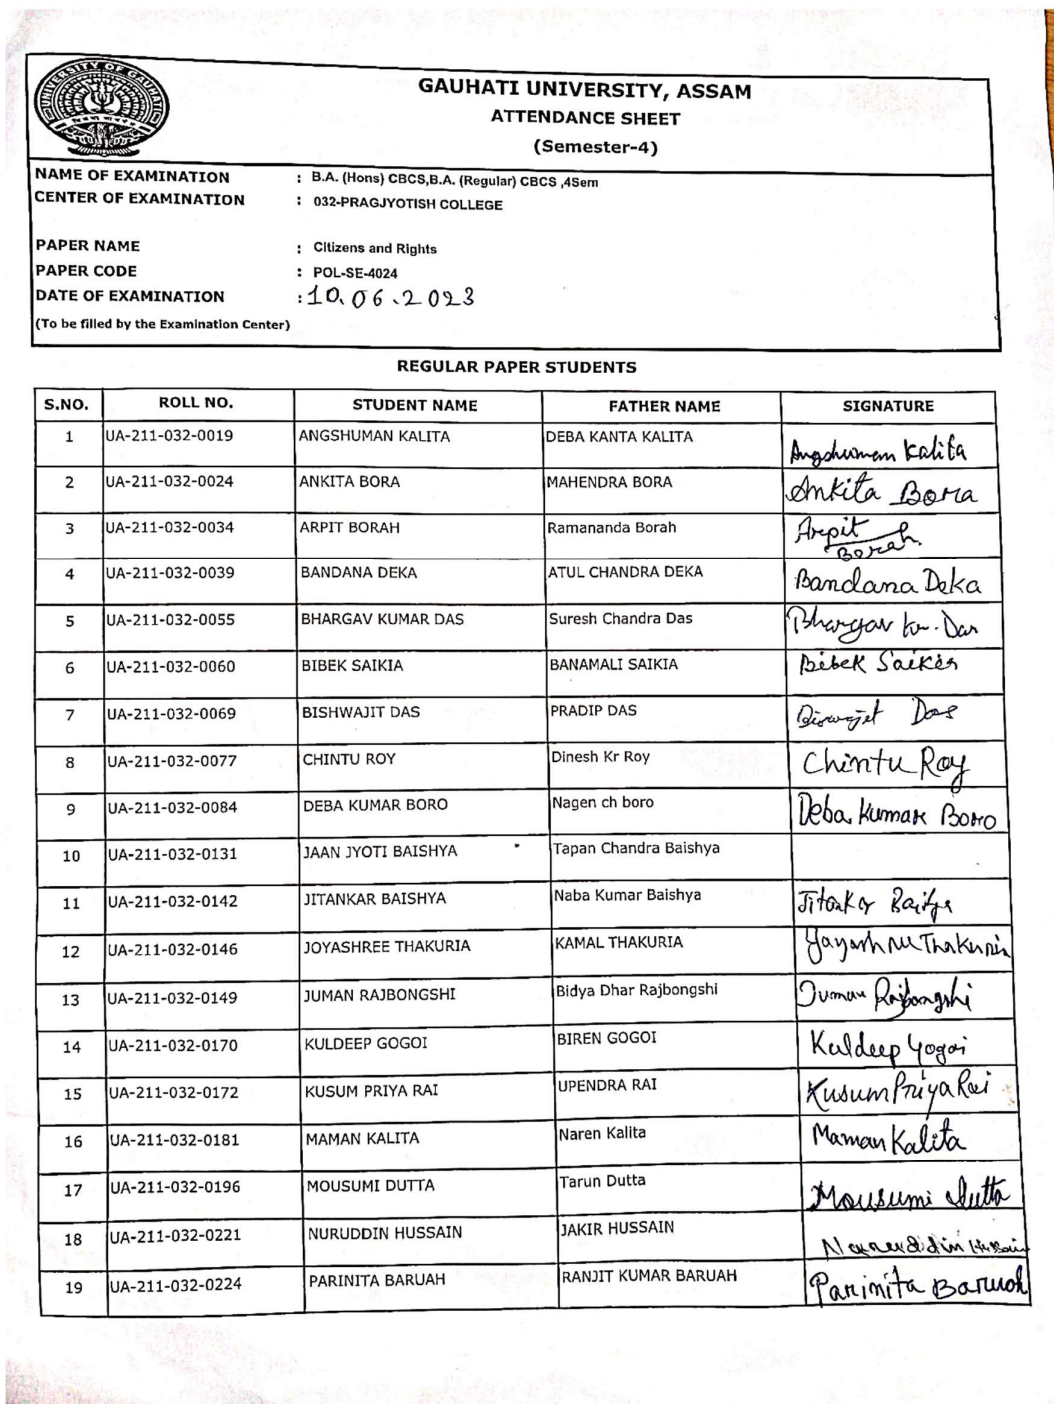 UNIVERSITY OF GAUHATI
GAUHATI UNIVERSITY, ASSAM
ATTENDANCE SHEET
(Semester-4)
NAME OF EXAMINATION : B.A. (Hons) CBCS,B.A. (Regular) CBCS ,4Sem
CENTER OF EXAMINATION : 032-PRAGJYOTISH COLLEGE
PAPER NAME : Citizens and Rights
PAPER CODE : POL-SE-4024
DATE OF EXAMINATION : 10.06.2023
(To be filled by the Examination Center)
REGULAR PAPER STUDENTS
S.NO. ROLL NO. STUDENT NAME FATHER NAME SIGNATURE
1 UA-211-032-0019 ANGSHUMAN KALITA DEBA KANTA KALITA Angshuman Kalita
2 UA-211-032-0024 ANKITA BORA MAHENDRA BORA Ankita Bora
3 UA-211-032-0034 ARPIT BORAH Ramananda Borah Arpit Borah
4 UA-211-032-0039 BANDANA DEKA ATUL CHANDRA DEKA Bandana Deka
5 UA-211-032-0055 BHARGAV KUMAR DAS Suresh Chandra Das Bhargav Kr. Das
6 UA-211-032-0060 BIBEK SAIKIA BANAMALI SAIKIA Bibek Saikia
7 UA-211-032-0069 BISHWAJIT DAS PRADIP DAS Das
8 UA-211-032-0077 CHINTU ROY Dinesh Kr Roy Chintu Roy
9 UA-211-032-0084 DEBA KUMAR BORO Nagen ch boro Deba Kumar Boro
10 UA-211-032-0131 JAAN JYOTI BAISHYA Tapan Chandra Baishya
11 UA-211-032-0142 JITANKAR BAISHYA Naba Kumar Baishya
12 UA-211-032-0146 JOYASHREE THAKURIA KAMAL THAKURIA Thakuria
13 UA-211-032-0149 JUMAN RAJBONGSHI Bidya Dhar Rajbongshi Juman Rajbongshi
14 UA-211-032-0170 KULDEEP GOGOI BIREN GOGOI Kuldeep Gogoi
15 UA-211-032-0172 KUSUM PRIYA RAI UPENDRA RAI Kusum Priya Rai
16 UA-211-032-0181 MAMAN KALITA Naren Kalita Maman Kalita
17 UA-211-032-0196 MOUSUMI DUTTA Tarun Dutta Mousumi Dutta
18 UA-211-032-0221 NURUDDIN HUSSAIN JAKIR HUSSAIN Hussain
19 UA-211-032-0224 PARINITA BARUAH RANJIT KUMAR BARUAH Parinita Baruah